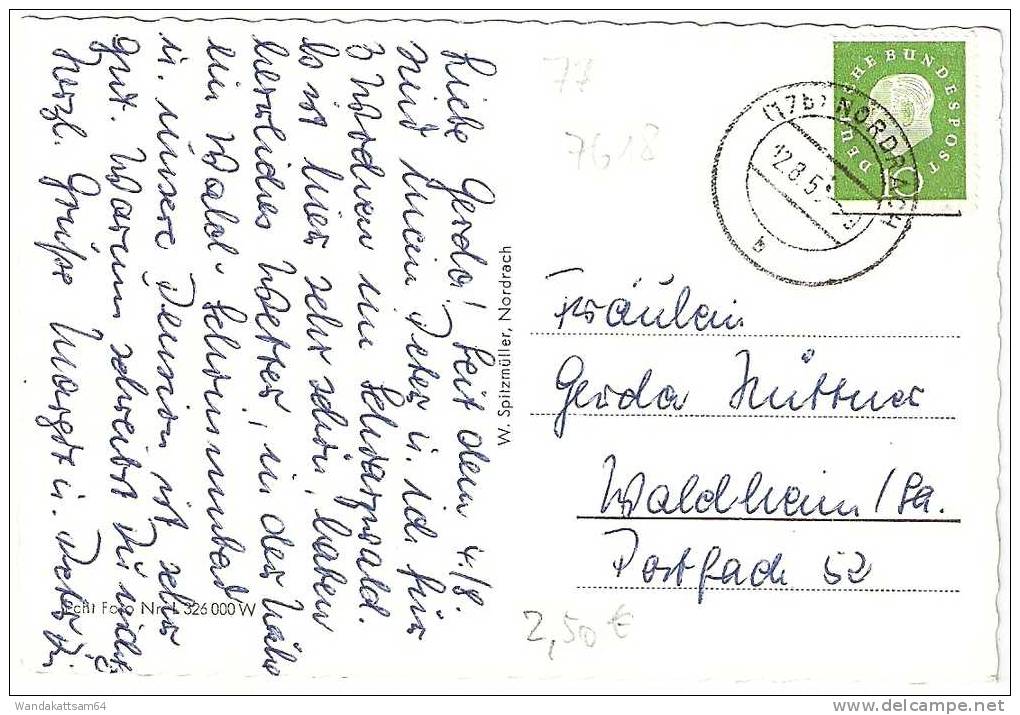 Liebe Gerda! Seit dem 4./8.
sind mein Peter u. ich für
3 Wochen im Schwarzwald.
Es ist hier sehr schön, haben
herrliches Wetter, in der Nähe
ein Wald-Schwimmbad
u. unsere Pension ist sehr
gut. Warum schreibst Du nicht?
Herzl. Grüße Margot u. Peter
Echt Foto Nr. L 326 000 W
W. Spitzmüller, Nordrach
77
7618
DEUTSCHE BUNDESPOST
10
(17b) NORDRACH
12.8.5
b
Fräulein
Gerda Hüttner
Waldheim/Sa.
Postfach 52
2,50 €
Wandakattsam64